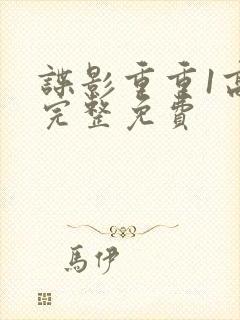 諜影重重1高
完整免費
馬伊